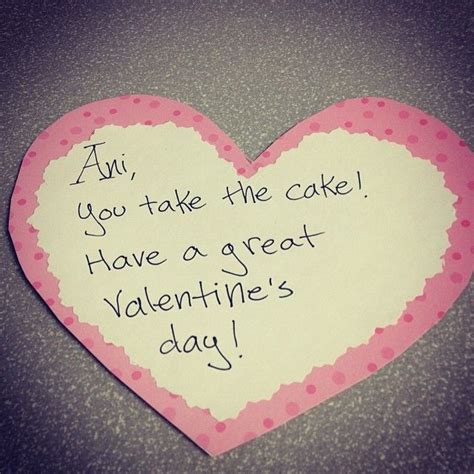 Ani,
you take the cake!
Have a great
Valentine's
day!